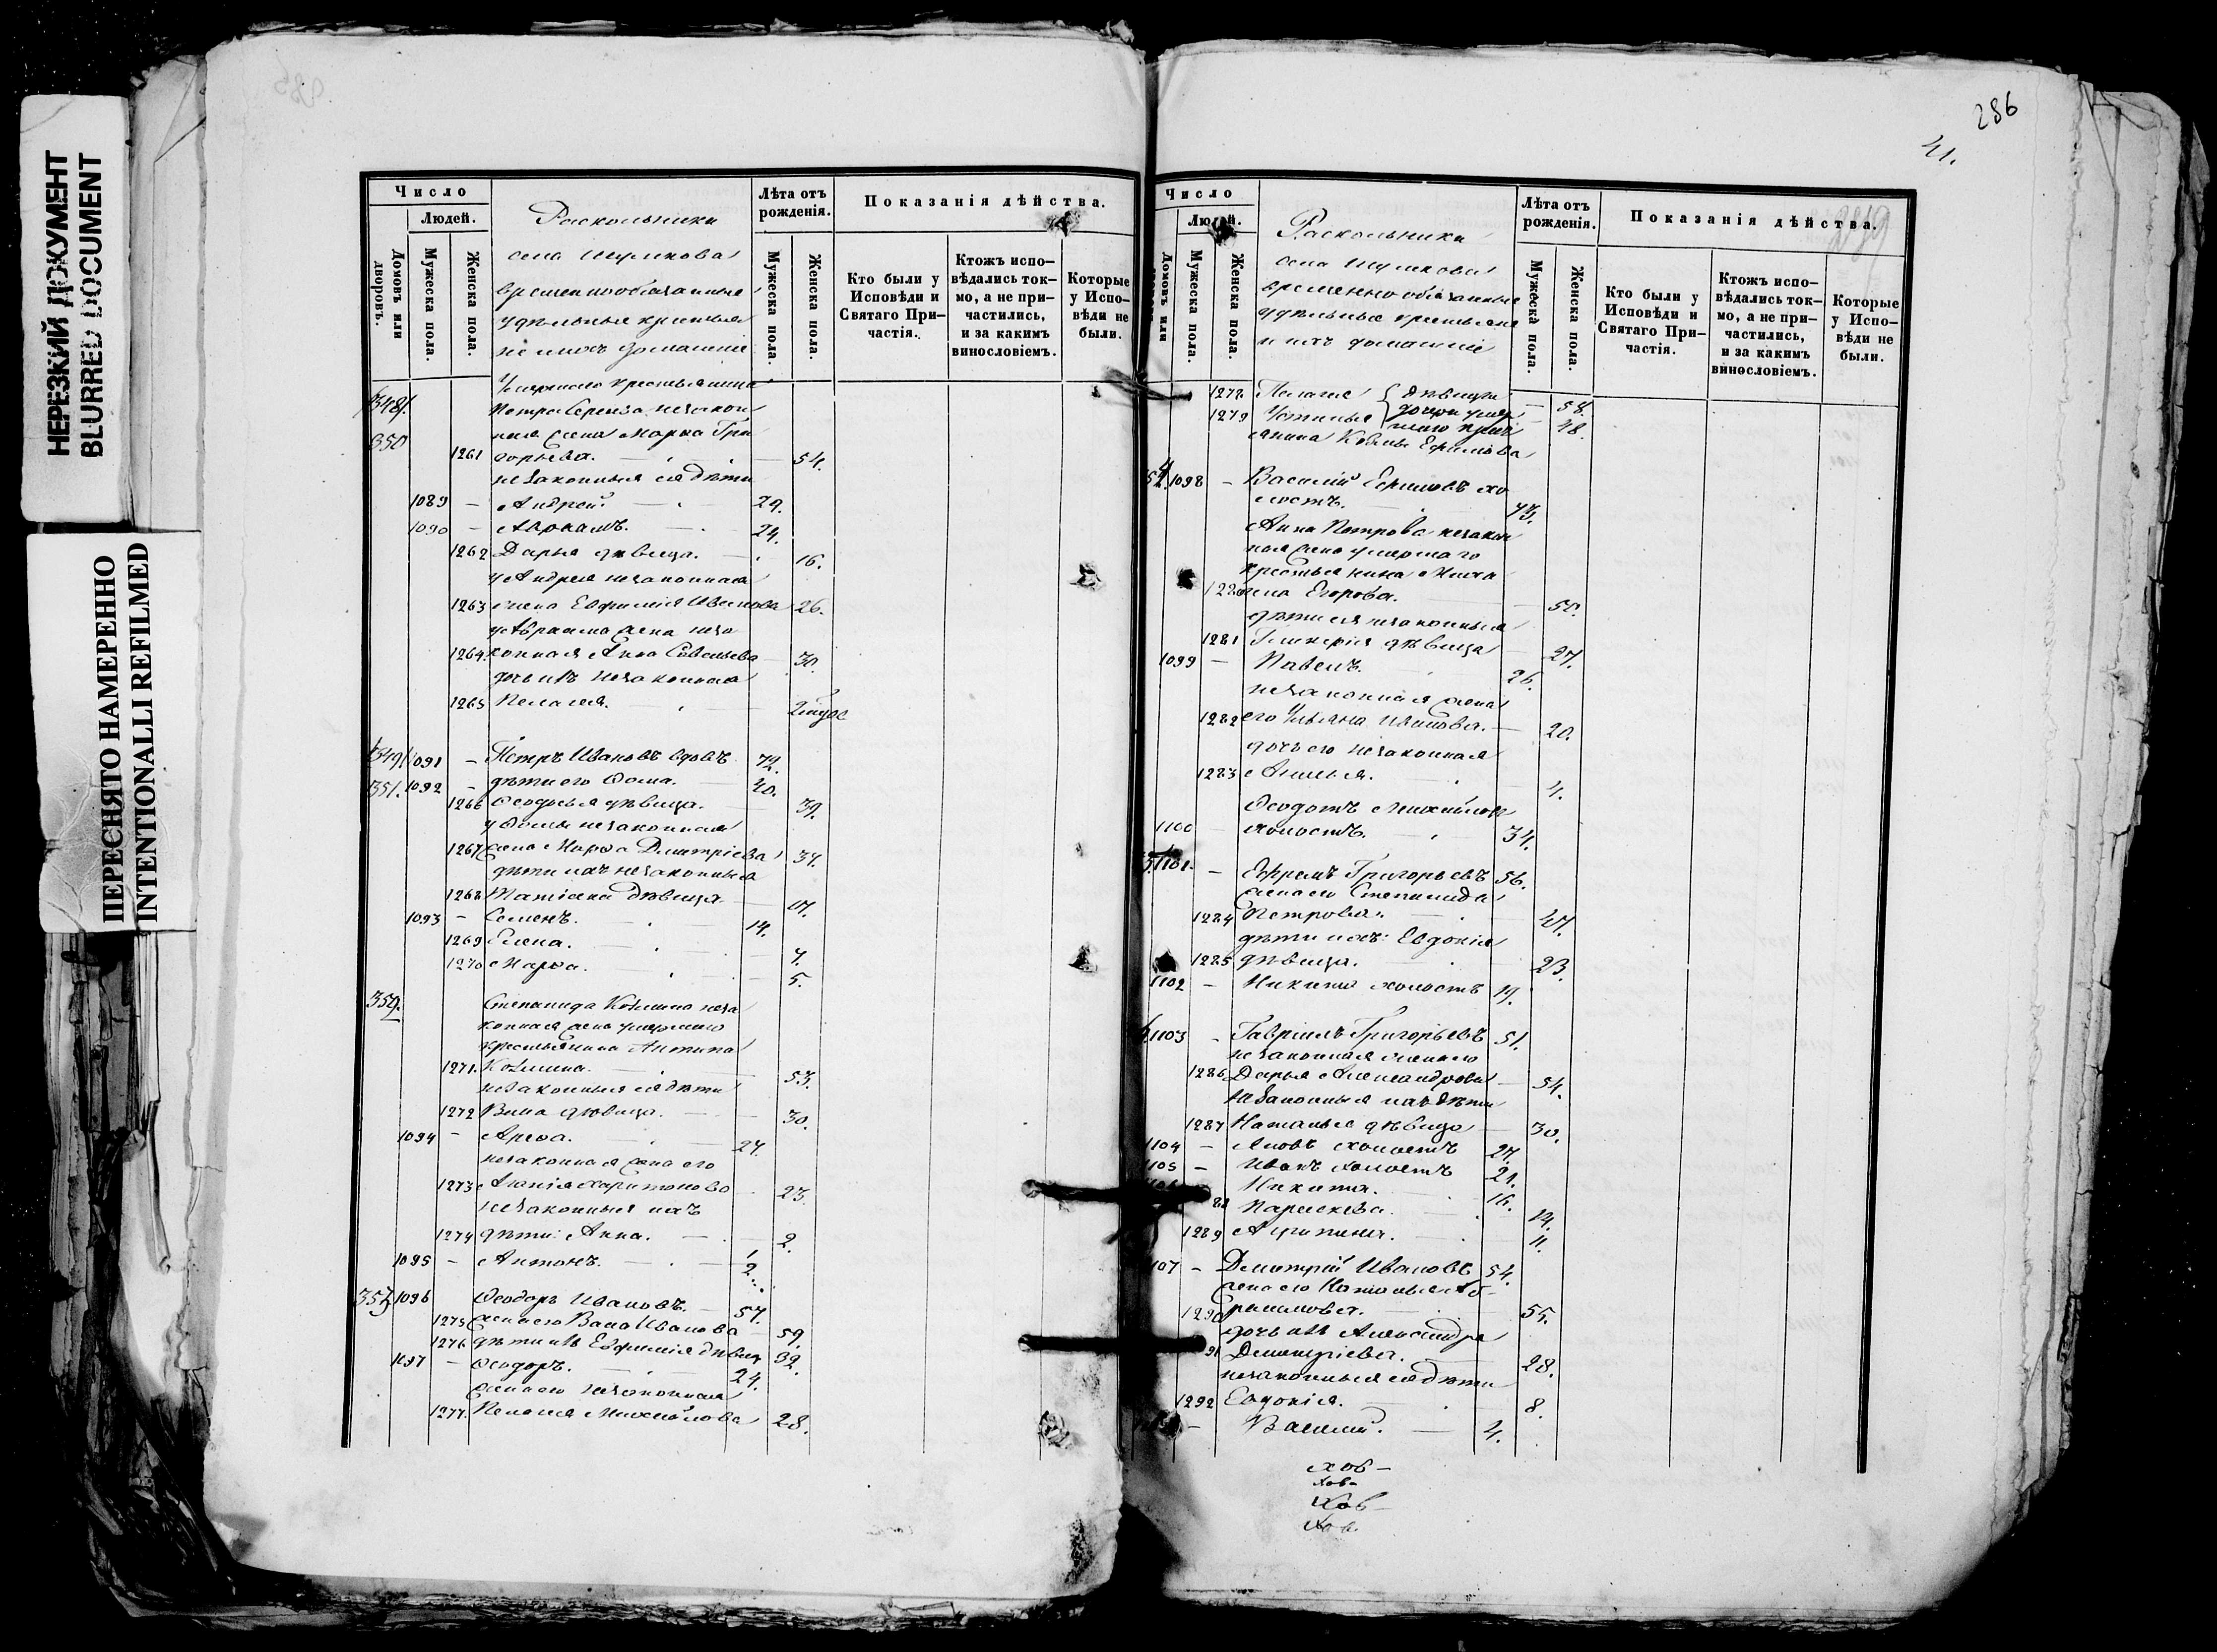 НЕРЕЗКИЙ ДОКУМЕНТ
BLURRED DOCUMENT
ПЕРЕСНЯТО НАМЕРЕННО
INTENTIONALLI REFILMED
Число
Людей.
Домовъ или дворовъ.
Мужеска пола.
Женска пола.
Раскольники
села
временнообязанные
удѣльные крестьяне
и ихъ домашніе
Лѣта отъ рожденія.
Мужеска пола.
Женска пола.
Показанія дѣйства.
Кто были у Исповѣди и Святаго Причастія.
Ктожъ исповѣдались токмо, а не причастились, и за какимъ винословіемъ.
Которые у Исповѣди не были.
Умершаго крестьянина
348.
Петра незакон
350
ная жена Марѳа Гри
1261 горьева. 54.
незаконныя ея дѣти
1089 – Андрей. 29.
1090 – Авраамъ. 24.
1262 Дарья дѣвица. 16.
у Андрея незаконная
1263 жена Евфимія Иванова 26.
у Авраама жена неза
1264. конная Анна Савельева 30.
дочь ихъ незаконная
1265 Пелагея.
349 1091 – Петръ Ивановъ вдовъ 72.
351. 1092 – дѣти его Ѳома. 40.
1266 Ѳеодосья дѣвица. 39.
у Ѳомы незаконная
1267 жена Марѳа Димитріева 37.
дѣти ихъ незаконныя
1268 Татіана дѣвица 17.
1093 – Семенъ. 14.
1269 Елена. 7.
1270 Марѳа. 5.
352.
Степанида Козьмина неза
конная жена умершаго
крестьянина Антипа
1271. Козьмина. 53.
незаконныя ея дѣти
1272 Васа дѣвица. 30.
1094 – Ареѳа. 27.
незаконная жена его
1273 Ксенія Харитонова 23.
незаконныя ихъ
1274 дѣти: Анна. 2.
1095 – Антонъ. 2.
353 1096 Ѳеодоръ Ивановъ. 57.
1275 жена его Васа Иванова 59.
1276 дѣти ихъ Евфимія дѣвица 32.
1097 – Ѳеодоръ. 24.
жена его незаконная
1277. Пелагея Михайлова 28.
286
41.
Число
Людей.
Домовъ или
Мужеска пола.
Женска пола.
Раскольники
села
временнообязанные
удѣльные крестьяне
и ихъ домашніе
Лѣта отъ рожденія.
Мужеска пола.
Женска пола.
Показанія дѣйства.
Кто были у Исповѣди и Святаго Причастія.
Ктожъ исповѣдались токмо, а не причастились, и за какимъ винословіемъ.
Которые у Исповѣди не были.
1278 Пелагея дѣвицы 58.
1279 Устинья дочери умер 48.
шаго крест
янина Козьмы Ефимова
1098 – Василій Ефимовъ хо
лостъ. 43.
Анна Петрова незакон
ная жена умершаго
крестьянина Миха
1280 ила Егорова. 50.
дѣти ея незаконныя
1281 Гликерія дѣвица 27.
1099 – Павелъ. 26.
незаконная жена
1282 его Ульяна Иванова. 20.
дочь его незаконная
1283 Анисья. 4.
Ѳеодотъ Михайловъ
1100 – холостъ. 34.
1101. – Ефремъ Григорьевъ 56.
жена его Степанида
1284 Петрова. 47.
дѣти ихъ: Евдокія
1285 дѣвица. 23.
1102 – Никита холостъ 19.
1103 – Гавріилъ Григорьевъ 51.
незаконная жена его
1286 Дарья Александрова 54.
незаконныя ихъ дѣти
1287 Наталья дѣвица 30.
1104 – Яковъ холостъ 27.
1105 – Иванъ холостъ 21.
Никита. 16.
88 Параскева. 14.
1289 Агрипина. 11.
107 – Димитрій Ивановъ 54.
жена его Наталья Аб
1290 рамова. 55.
дочь ихъ Александра
91 Димитріева. 28.
незаконныя ея дѣти
1292 Евдокія. 8.
– Василій. 4.